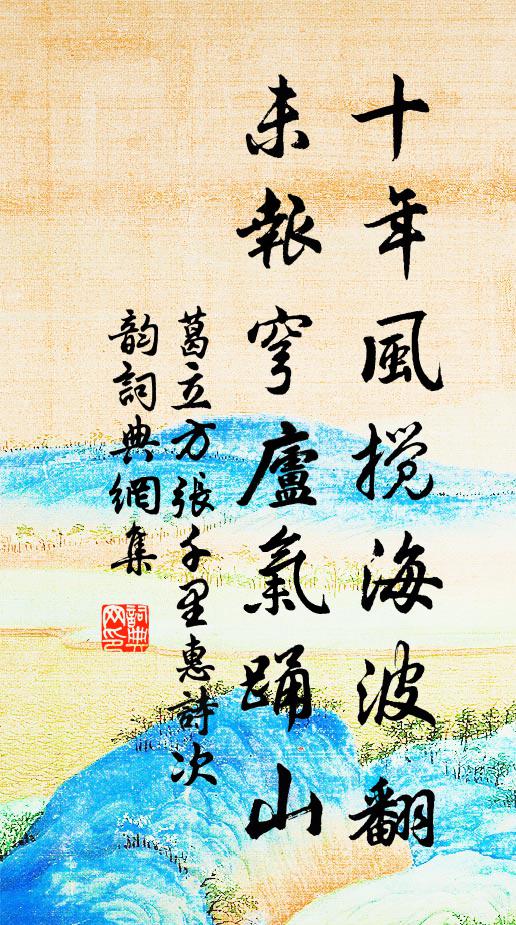 十年風攪海波翻
未報穹廬氣踊山
葛立方張千里惠詩次
韵詞典網集
詞典
网印